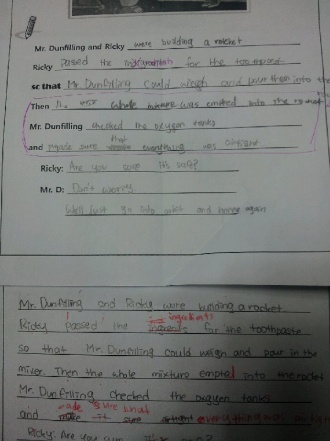 Mr. Dunfilling and Ricky were building a rocket
Ricky passed the ingredients for the toothpaste
so that Mr. Dunfilling could weigh and pour them into the
Then the whole mixture was emptied into the rocket
Mr. Dunfilling checked the oxygen tanks
that
and made sure everything was
Ricky: Are you sure it's safe?
Mr. D: Don't worry
We'll just go into orbit and home again
Mr. Dunfilling and Ricky were building a rocket.
ingredients
Ricky passed the for the toothpaste
so that Mr. Dunfilling could weigh and pour in the
mixer. Then the whole mixture into the rocket
Mr. Dunfilling checked the oxygen tanks
made sure that
and everything was
Ricky: Are you sure